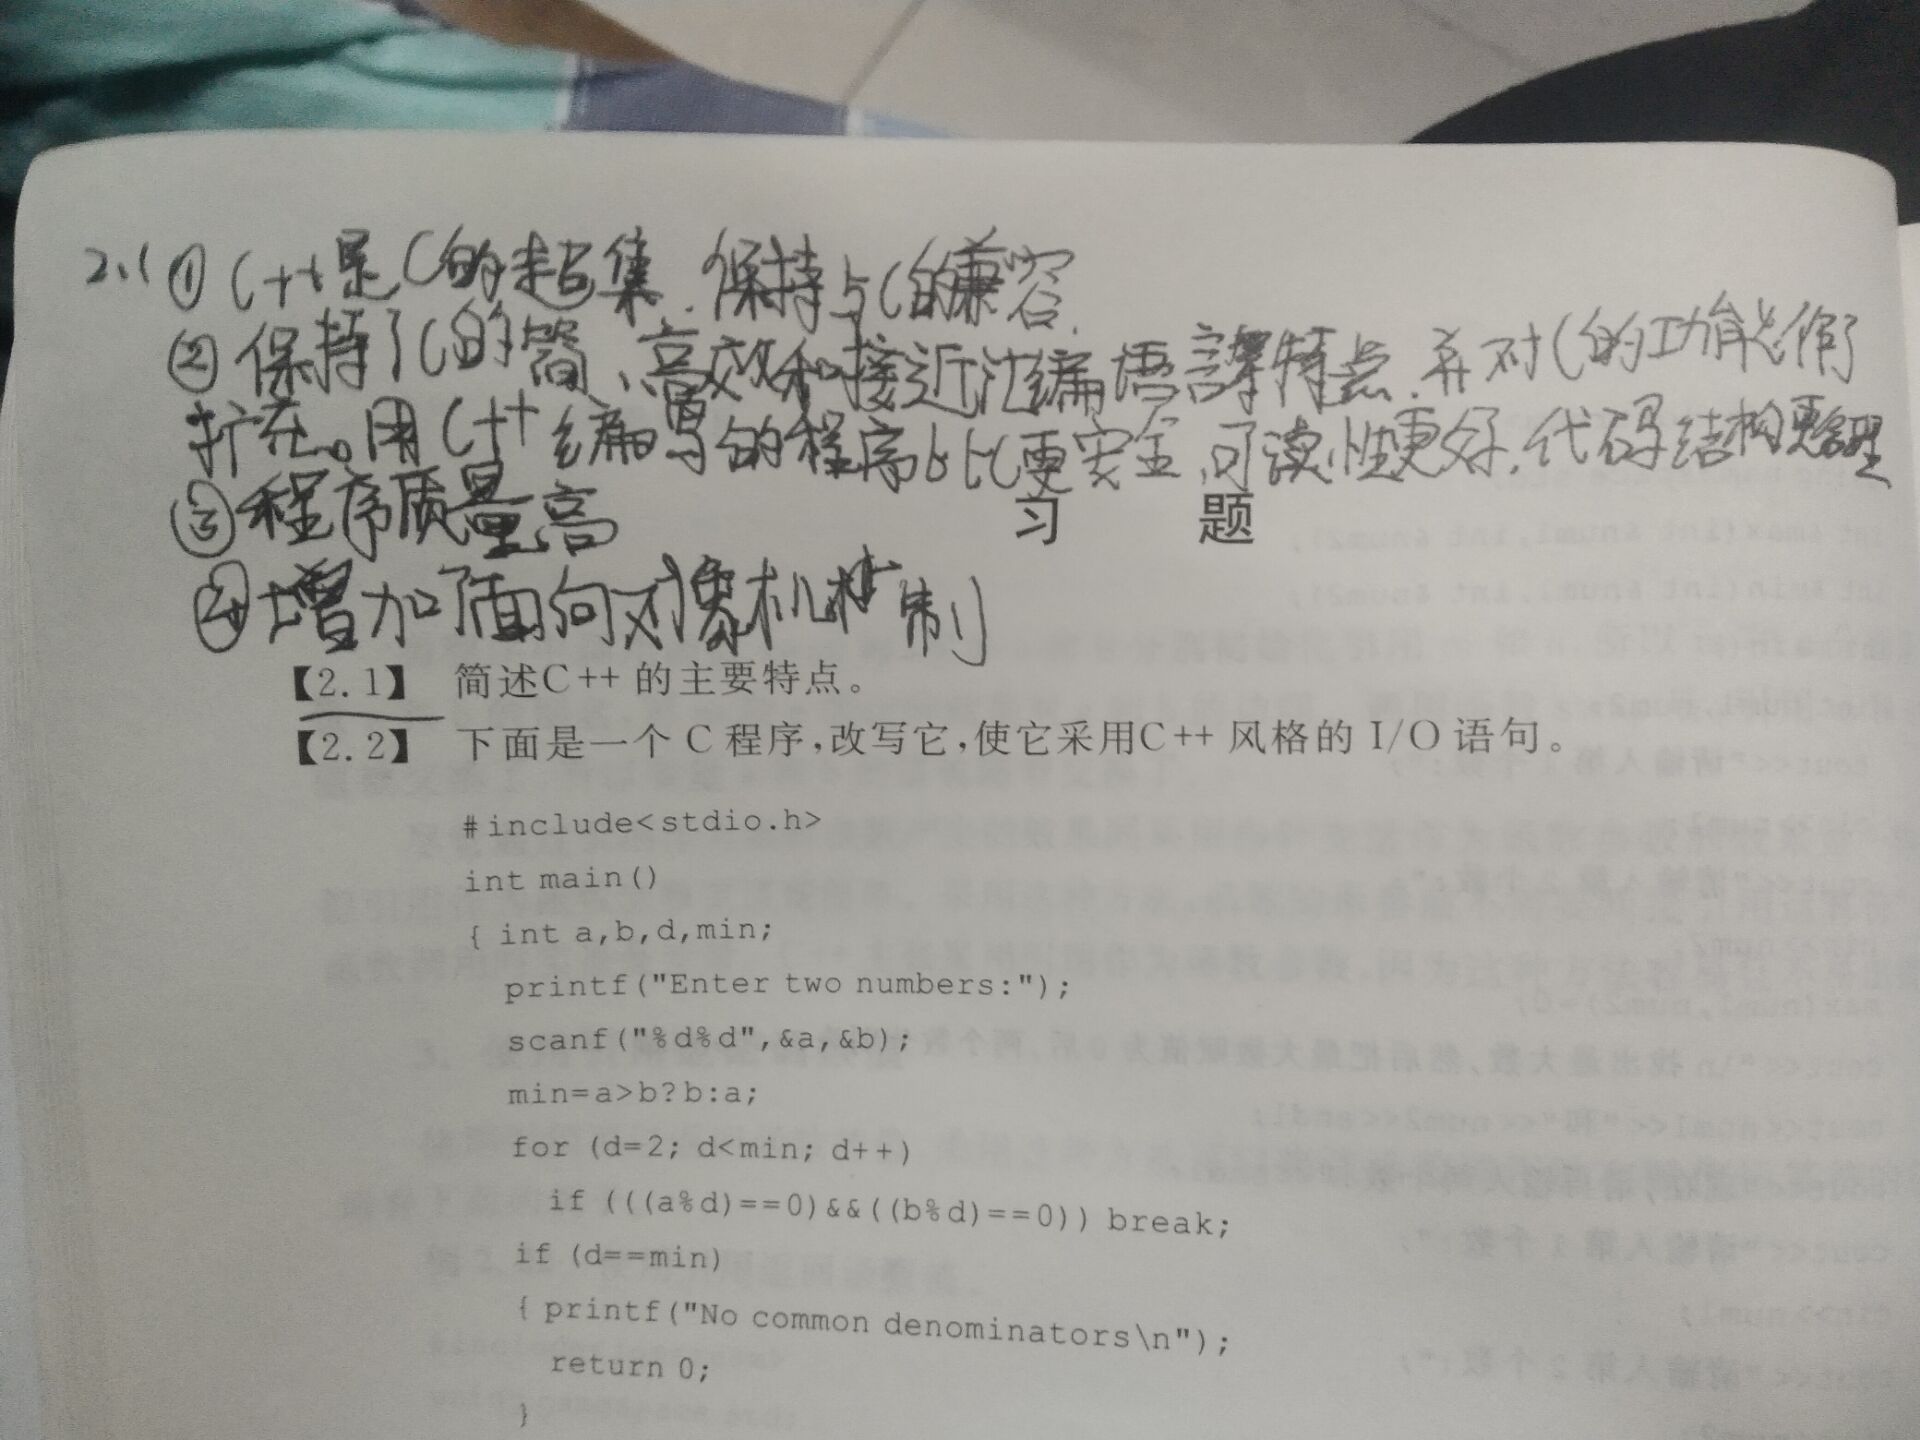 2.1 ① C++是C的超集.保持与C的兼容.
② 保持了C的简、高效和接近汇编语言等特点.并对C的功能作了
扩充。用C++编写的程序比C更安全,可读性更好,代码结构更合理
③程序质量高
④增加了面向对象机制
习 题
【2.1】 简述C++的主要特点。
【2.2】 下面是一个 C 程序,改写它,使它采用C++ 风格的 I/O 语句。
#include<stdio.h>
int main()
{ int a,b,d,min;
printf("Enter two numbers:");
scanf("%d%d",&a,&b);
min=a>b?b:a;
for (d=2; d<min; d++)
if (((a%d)==0)&&((b%d)==0)) break;
if (d==min)
{ printf("No common denominators\n");
return 0;
}